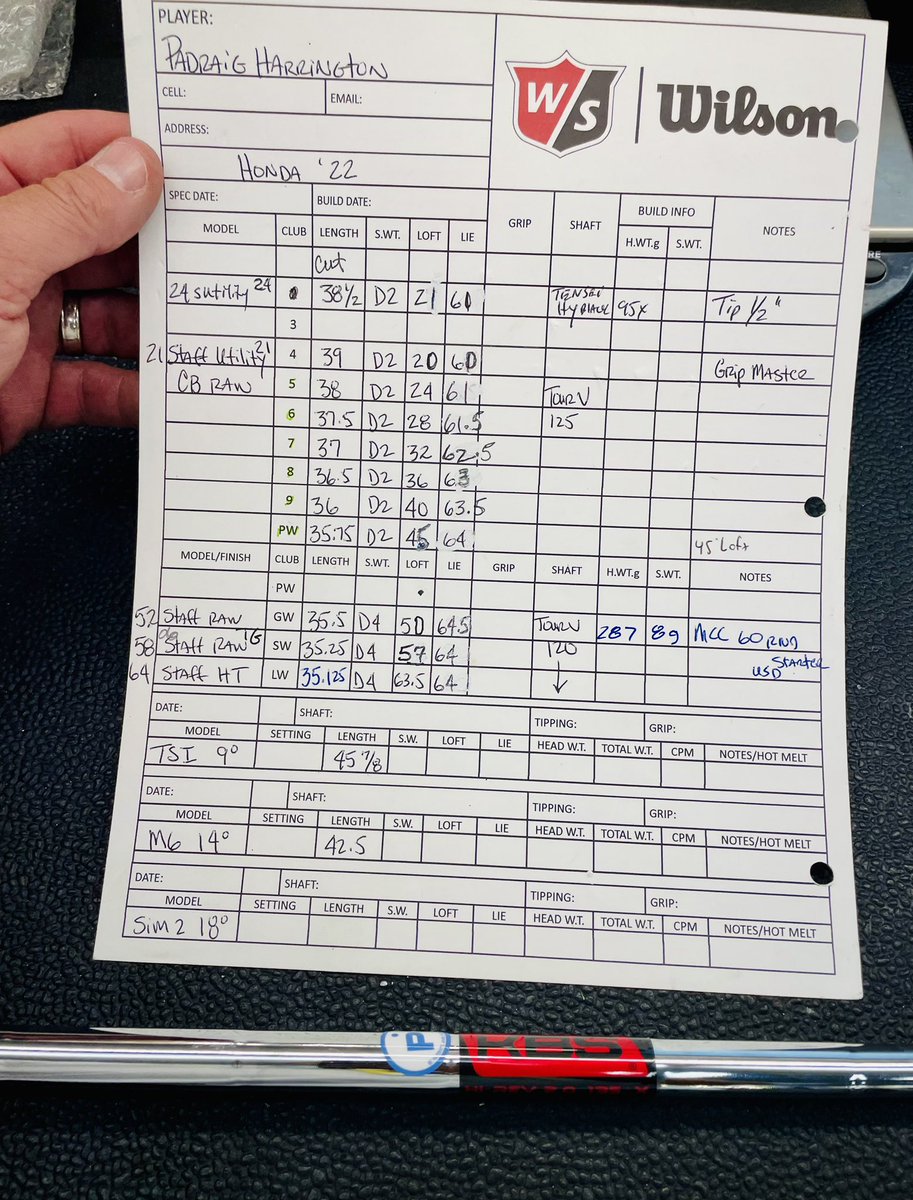 PLAYER:
PADRAIG HARRINGTON
CELL: EMAIL:
ADDRESS:
HONDA '22
W/S Wilson
SPEC DATE: BUILD DATE: GRIP SHAFT BUILD INFO NOTES
MODEL CLUB LENGTH S.WT. LOFT LIE H.WT.g S.WT.
Cut
24 Sutility 24 38 1/2 D2 21 60 TENSEI HY BLACK 95X Tip 1/2"
3
21 Staff Utility 21 4 39 D2 20 60 Grip Master
CB RAW 5 38 D2 24 61 Tour V
6 37.5 D2 28 61.5 125
7 37 D2 32 62.5
8 36.5 D2 36 63
9 36 D2 40 63.5
PW 35.75 D2 45 64 45° Loft
MODEL/FINISH CLUB LENGTH S.WT. LOFT LIE GRIP SHAFT H.WT.g S.WT. NOTES
PW
52 Staff RAW GW 35.5 D4 50 64.5 Tour V 287 89 MCC 60 RND
58 Staff RAW SW 35.25 D4 57 64 120 Started USD
64 Staff HT LW 35.125 D4 63.5 64
DATE: SHAFT: TIPPING: GRIP:
MODEL SETTING LENGTH S.W. LOFT LIE HEAD W.T. TOTAL W.T. CPM NOTES/HOT MELT
TSI 9° 45 7/8
DATE: SHAFT: TIPPING: GRIP:
MODEL SETTING LENGTH S.W. LOFT LIE HEAD W.T. TOTAL W.T. CPM NOTES/HOT MELT
M6 14° 42.5
DATE: SHAFT: TIPPING: GRIP:
MODEL SETTING LENGTH S.W. LOFT LIE HEAD W.T. TOTAL W.T. CPM NOTES/HOT MELT
Sim 2 18°
P KBS